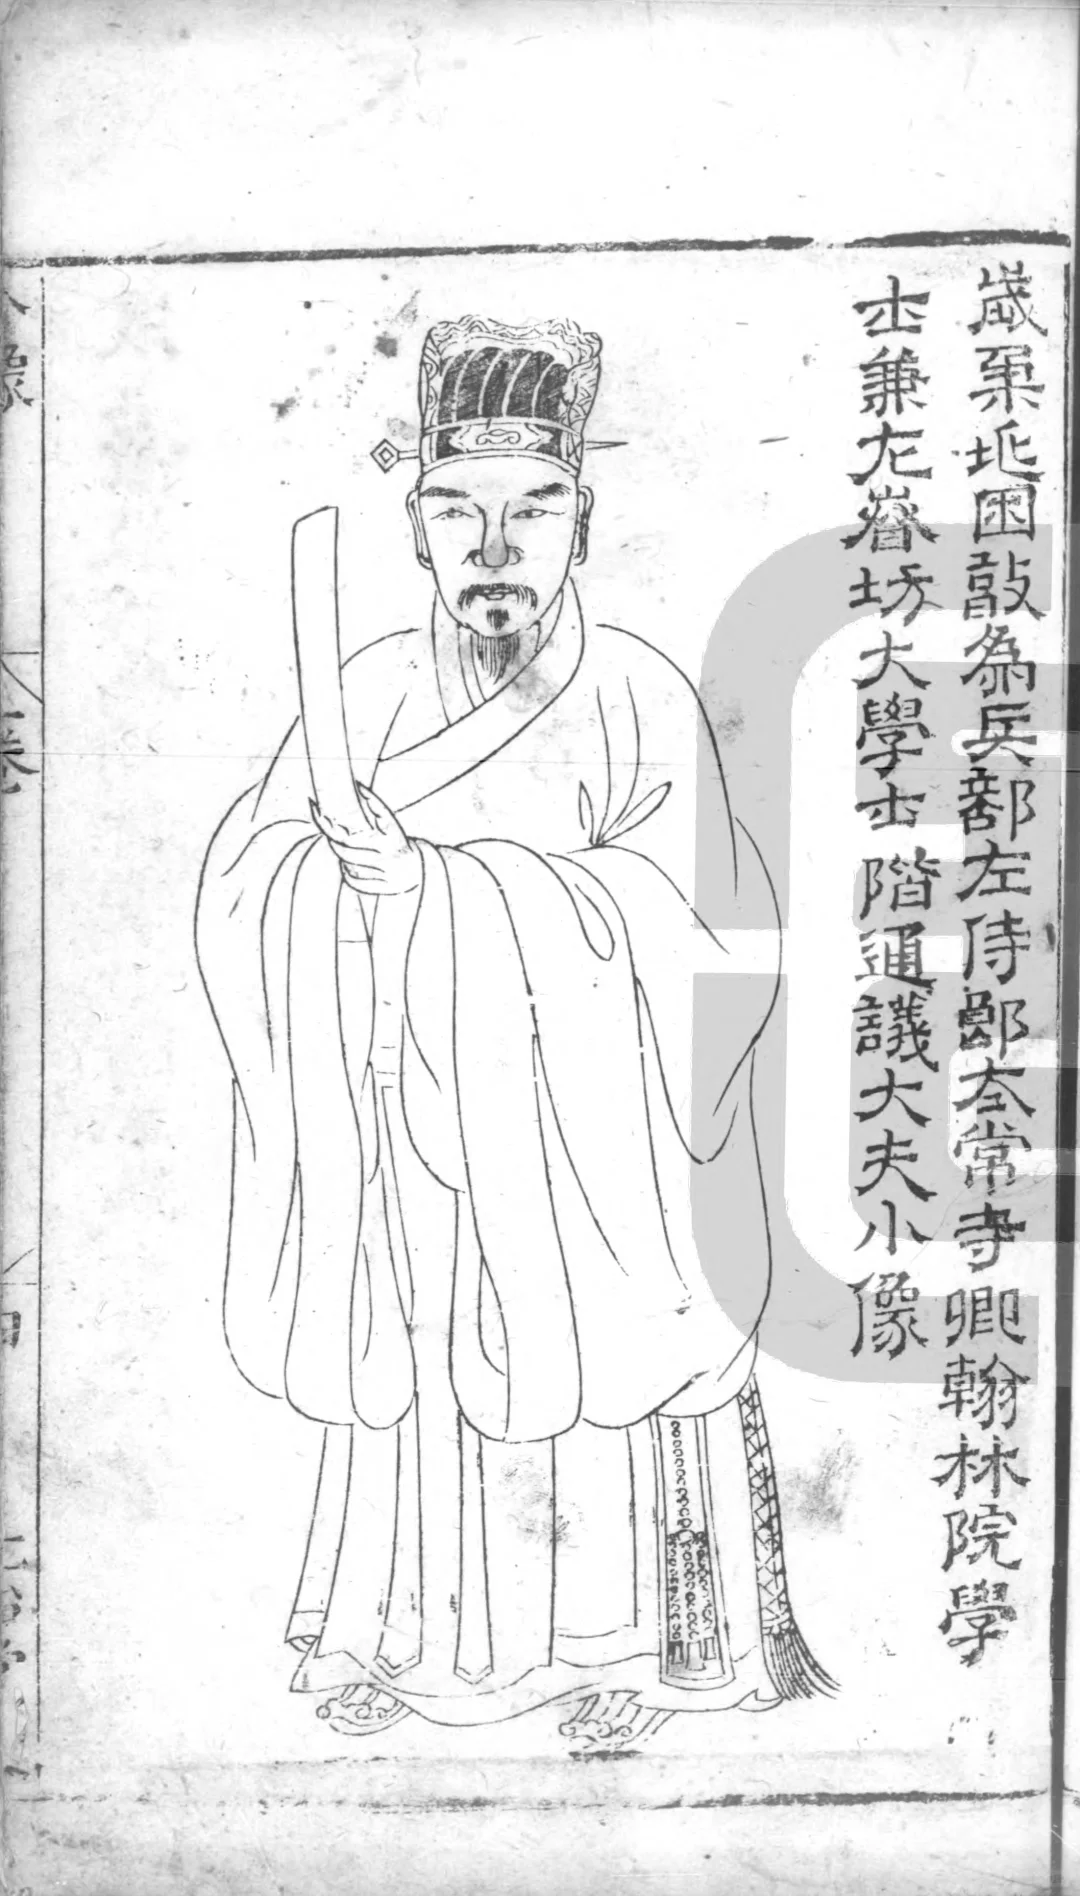 歲柔兆困敦為兵部左侍郎太常寺卿翰林院學
士兼左春坊大學士階通議大夫小像